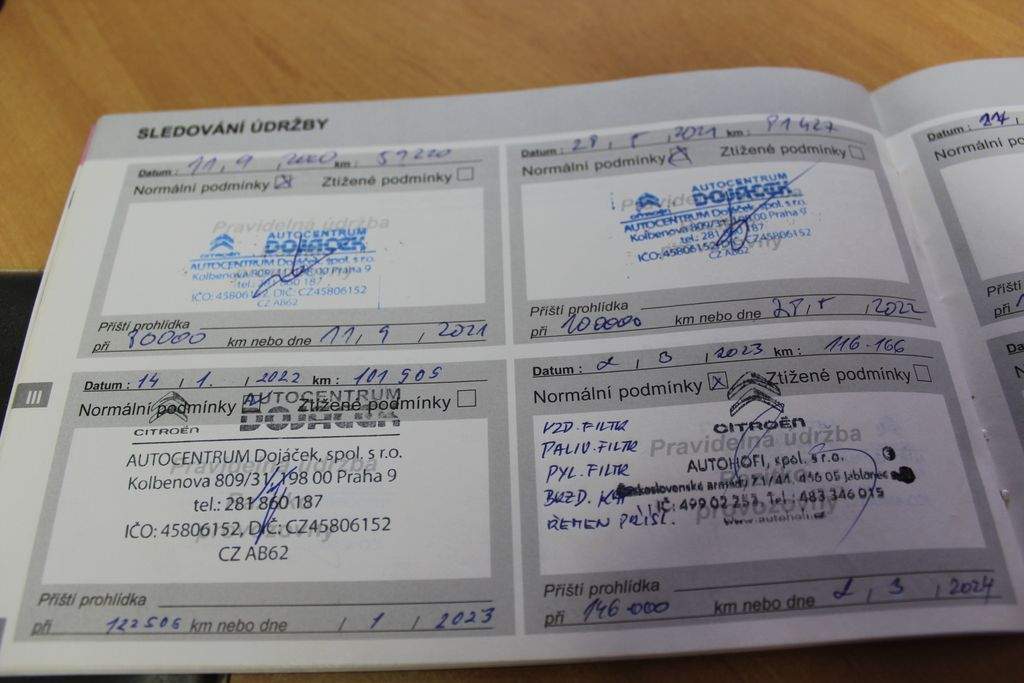 SLEDOVÁNÍ ÚDRŽBY
Datum : 11 , 9 , 2020 km : 59220
Normální podmínky Ztížené podmínky
Pravidelná údržba
CITROËN AUTOCENTRUM
DOJÁČEK
AUTOCENTRUM Dojáček, spol. s r.o.
Kolbenova 809/31, 198 00 Praha 9
tel.: 281 860 187
IČO: 45806152, DIČ: CZ45806152
CZ AB62
Příští prohlídka
při 80000 km nebo dne 11 , 9 , 2021
Datum : 28 , 5 , 2021 km : 81427
Normální podmínky Ztížené podmínky
Pravidelná údržba
CITROËN AUTOCENTRUM
DOJÁČEK
AUTOCENTRUM Dojáček, spol. s r.o.
Kolbenova 809/31, 198 00 Praha 9
tel.: 281 860 187
IČO: 45806152, DIČ: CZ45806152
CZ AB62
Příští prohlídka
při 100000 km nebo dne 28 , 5 , 2022
III
Datum : 14 , 1. , 2022 km : 101 505
Normální podmínky Ztížené podmínky
CITROËN AUTOCENTRUM
DOJÁČEK
AUTOCENTRUM Dojáček, spol. s r.o.
Kolbenova 809/31, 198 00 Praha 9
tel.: 281 860 187
IČO: 45806152, DIČ: CZ45806152
CZ AB62
Příští prohlídka
při 122505 km nebo dne / 1 , 2023
Datum : 2 , 3 , 2023 km : 116.166
Normální podmínky Ztížené podmínky
CITROËN
Pravidelná údržba
VZD. FILTR
PALIV. FILTR
PYL. FILTR
BRZD. KAP
ŘEMEN PŘÍSL.
AUTOHOFI, spol. s r.o.
Československé armády 71/41, 466 05 Jablonec
IČ: 499 02 253, Tel.: 483 346 015
www.autohofi.cz
provozovny
Příští prohlídka
při 146.000 km nebo dne 2 , 3 , 2024
Datum : 27 ,
Normální
Příští
při
Da
No